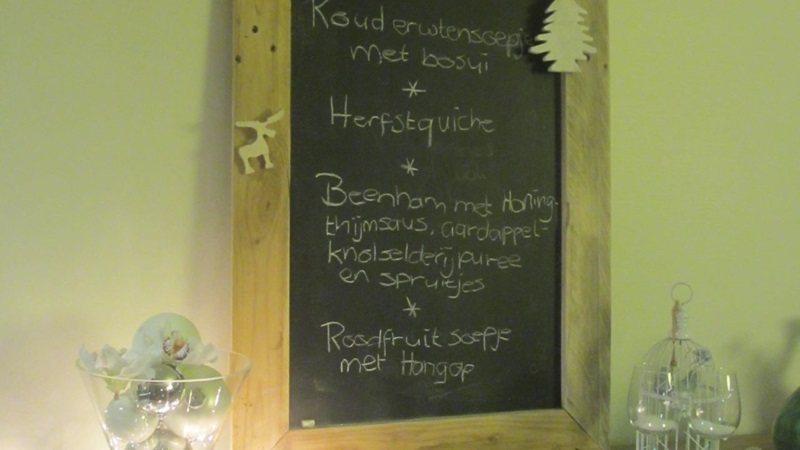 Koud erwtensoepje
met bosui
*
Herfstquiche
*
Beenham met Honing-
thijmsaus, aardappel-
knolselderijpuree
en spruitjes
*
Roodfruit soepje
met Hangop